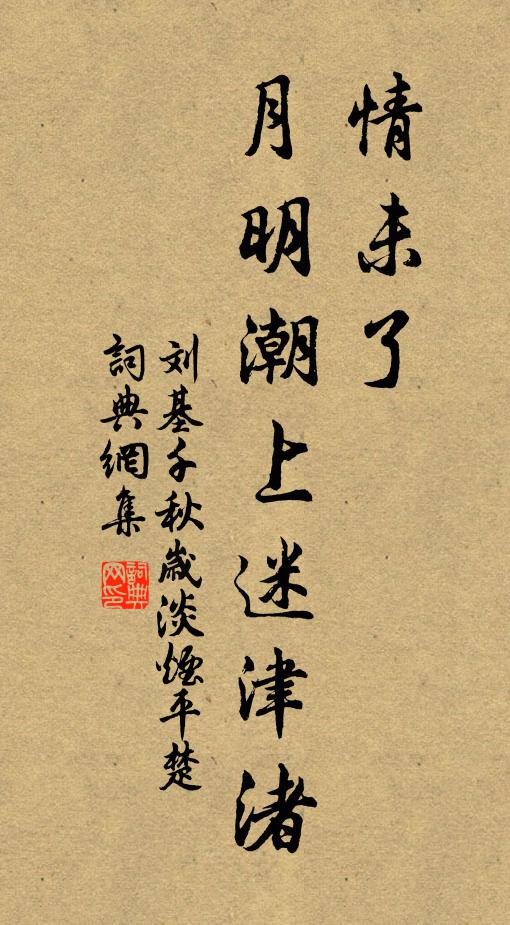 情未了
月明潮上迷津渚
刘基千秋歲淡煙平楚
詞典網集
詞典網印